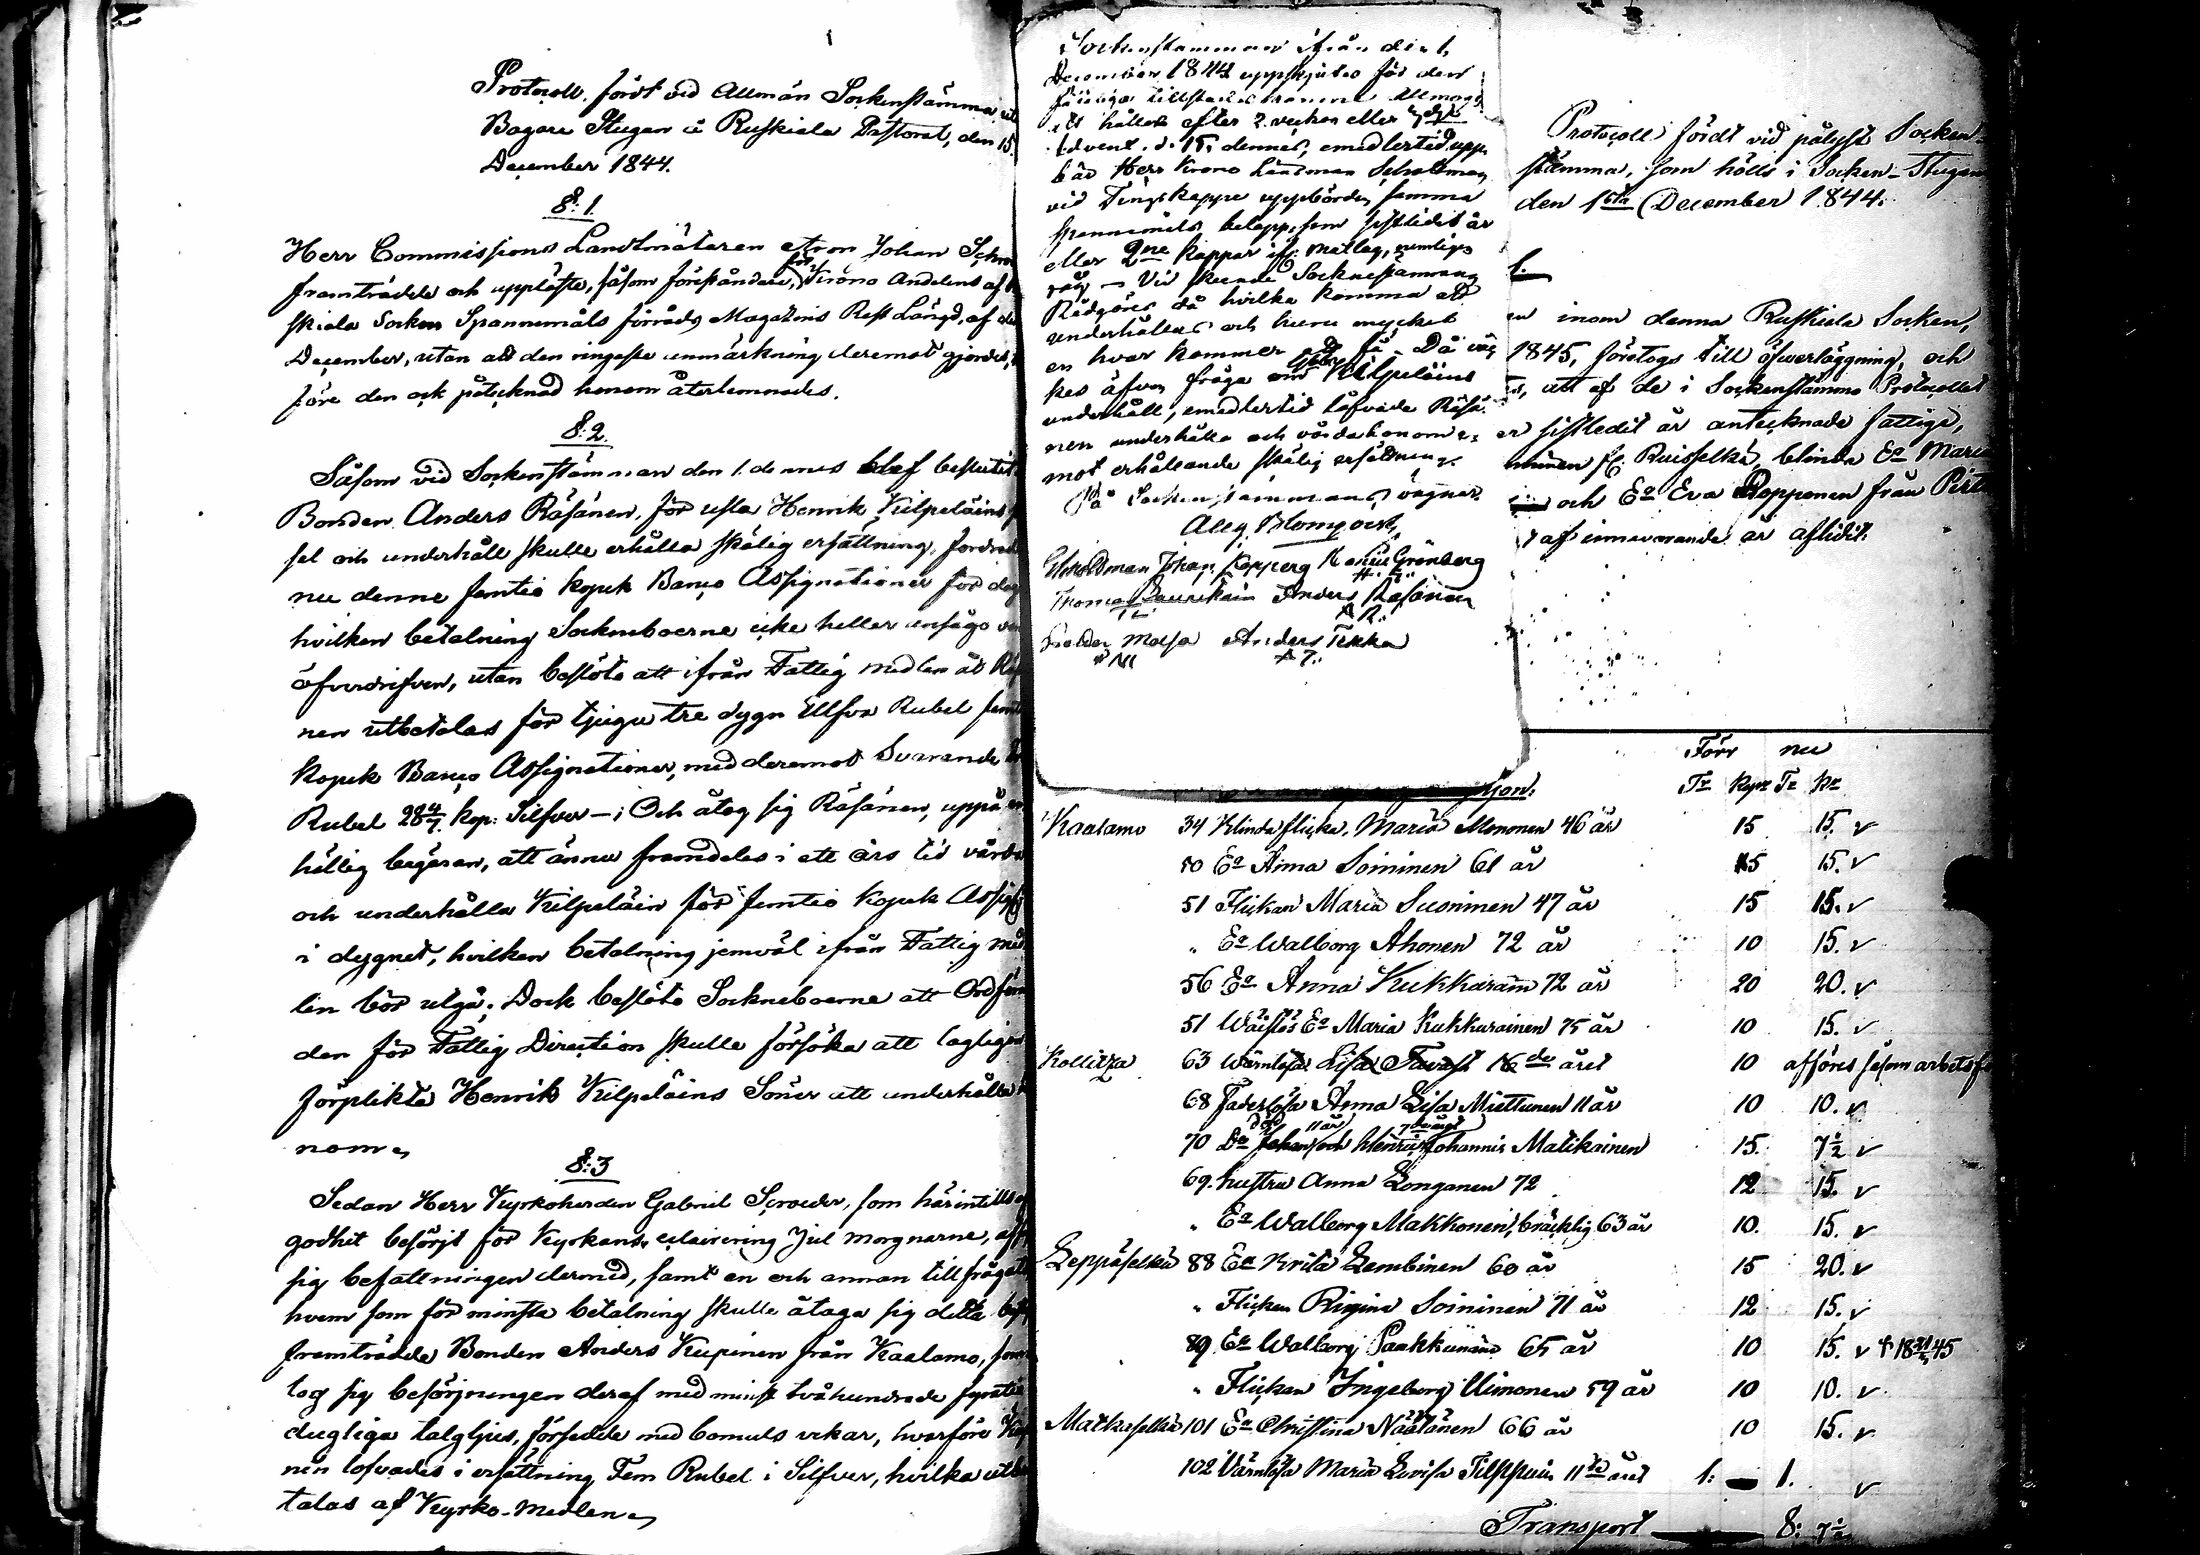 Protocoll, fördt vid Allmän Sockenstämma, uti
Bagare Stugan å Ruskiala Pastorat, den 15.
December 1844.
§: 1.
Herr Commissions Landtmätaren Aron Johan
framträdde och uppläste, såsom föreståndare, för Krono Andelens af
skiala Socken Spannemåls förråds Magazins Rest Längd, af
December, utan att den ringaste anmärkning deremot gjordes,
före den ock påtecknad honom återlemnades.
§: 2.
Såsom vid Sockenstämman den 1. dennes blef beslutit
Bonden Anders Räsänen, för usla Henrik Kilpeläins
sel och underhåll skulle erhålla skälig ersättning, fordrade
nu denne femtio kopek Banco Assignationer för dag
hvilken betalning Socknboerne icke heller ansågo
öfverdrifven, utan beslöto att ifrån Fattig medlen åt
nen utbetalas för tjugu tre dygn Ellfva Rubel femtio
kopek Banco Assignationer, med deremot Svarande
Rubel 28 4/7. kop: Silfver — ; Och åtog sig Räsänen, uppå
hällig begäran, att ännu framdeles i ett års tid vårda
och underhålla Kilpeläin för femtio kopek Assig
i dygnet, hvilken betalning jemväl ifrån Fattig med
len bör utgå; Dock beslöto Socknboerne att Ordföran
den för Fattig Direction skulle försöka att lagligen
förplikta Henrik Kilpeläins Söner att underhålla
nom.
§: 3
Sedan Herr Kyrkoherden Gabriel, som härintills
godhet besörjt för Kyrkans eclairering Jul morgnarne,
sig befattningen dermed, samt en och annan tillfrågats
hvem som för minsta betalning skulle åtaga sig detta
framträdde Bonden Anders Kupinen från Kaalamo, som
tog sig besörjningen deraf med minst tvåhundrade fyratio
dugliga talgljus, försedde med bomuls vekar, hvarföre
nen lofvades i ersättning Fem Rubel i Silfver, hvilka utbe
talas af Kyrko-medlen.
Sockenstämman ifrån den 1.
December 1844 uppskjutes för den
fåtaliga tillstädes komne Allmoge
att hållas efter 2. veckor eller
Advent. d. 15. dennes, emedlertid upp
bär Herr Krono Länsman Scholdman
vid Tingskappe uppbörden samma
spannemåls belopp, som sistledit år
eller 2ne kappar af matlag, nemligen
råg — Vid skeende Socknestämman
Rådgöres då hvilka komma att
underhållas och huru mycket
en hvar kommer att få. Då väc
kes äfven fråga om Kilpeläins
underhåll, emedlertid låfvade Räsä
nen underhålla och vårda honom e,
mot erhållande skälig ersättning.
På Sockenstämmans vägnar
Alex. Blomqvist,
Scholdman Johan Kopperg Grönberg
Thomas Anders Räsänen
A. R.
Anders Tekka
A T.
Protocoll fördt vid pålyst Socken-
stämma, som hölls i Socken-Stugan
den 1sta December 1844.
1.
inom denna Ruskiala Socken,
1845, företogs till öfverläggning, och
att af de i Sockenstämmo Protocollet
sistledit år antecknade fattige,
fr. Ruisselkä, blinda Ea Maria
och Ea Eva Ropponen från
af innevarande år aflidit.
Förr nu
Tr Kpr Tr Kr
Kaalamo 34 Klinda flicka, Maria Mononen 46 år 15 15. v
50 Ea Anna Soininen 61 år 15 15. v
51 Flickan Maria Suoninen 47 år 15 15. v
" Ea Walborg Ahonen 72 år 10 15. v
56 Ea Anna Kukkarain 72 år 20 20. v
51 Ea Maria Kukkurainen 75 år 10 15. v
Kollitza 63 Wärnlösa Lisa Tavast 16de året 10 afföres såsom arbetsf
68 Faderlösa Anna Lisa Miettunen 11 år 10 10. v
70 Do Johan och Henric Johannis Matikainen 15. 7½ v
69. hustru Anna Longanen 72 12 15. v
" Ea Walborg Makkonen, bräcklig 63 år 10. 15. v
Leppäselkä 88 Ea Krita Lembinen 60 år 15 20. v
" Flickan Rigina Soininen 71 år 12 15. v
89 Ea Walborg Paakkunain 65 år 10 15. v
" Flickan Ingeborg Uimonen 59 år 10 10. v
Matkaselkä 101 Ea Christina Näätänen 66 år 10 15. v
102 Värnlösa Maria Lovisa 11te året 1: 1. v
Transport 8: 7½